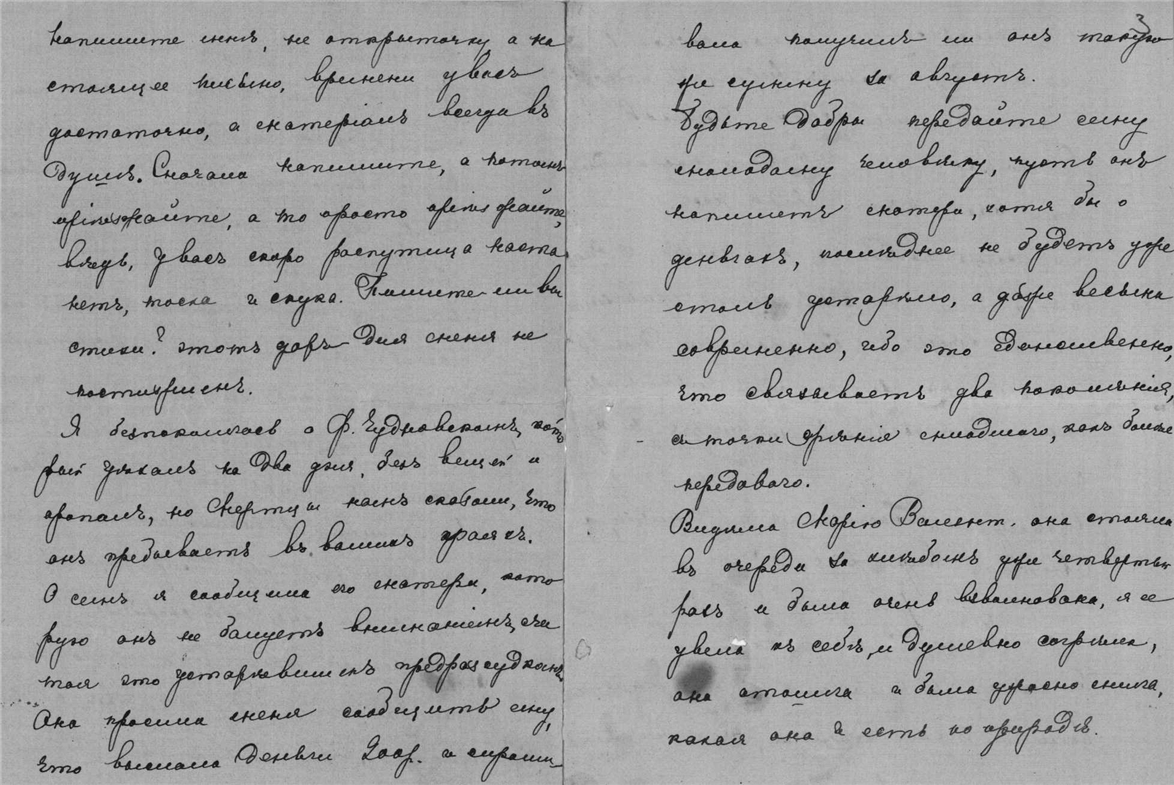 напишите мнѣ, не открыточку, а на
стоящее письмо, времени у васъ
достаточно, а матеріалъ всегда въ
душѣ. Сначала напишите, а потомъ
пріѣзжайте, а то просто пріѣзжайте,
вѣдь, у васъ скоро распутица наста
нетъ, тоска и скука. Пишите ли вы
стихи? этотъ даръ для меня не
постижимъ.
Я безпокоилась о Ф. Чудновскомъ, кото
рый уѣхалъ на два дня, безъ вещей и
пропалъ, но Мертцы намъ сказали, что
онъ пребываетъ въ вашихъ краяхъ.
О семъ я сообщила его матери, кото
рую онъ не балуетъ вниманіемъ, счи
тая это устарѣвшимъ предразсудкомъ
Она просила меня сообщить ему,
что выслала деньги 200р. и спраши-
3
вала получилъ ли онъ такую
же сумму за августъ.
Будьте добры передайте сему
молодому человѣку, пусть онъ
напишетъ матери, хотя бы о
деньгахъ, послѣднее не будетъ уже
столь устарѣло, а даже весьма
современно, ибо это единственно,
что связываетъ два поколѣнія,
съ точки зрѣнія младшаго, какъ болѣе
передового.
Видѣла Марію Валент. она стояла
въ очереди за хлѣбомъ уже четвертый
разъ и была очень взволнована, я ее
увела къ себѣ, и душевно согрѣла,
она отошла и была ужасно мила,
какая она и есть по природѣ.